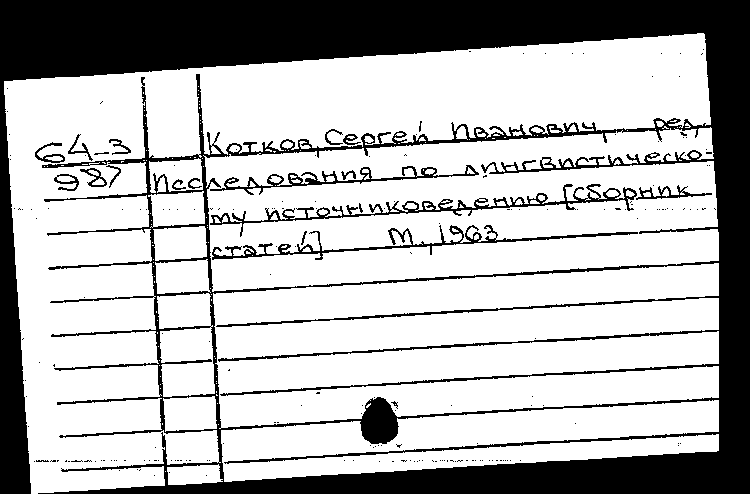 64-3 Котков, Сергей Иванович, ред.
987 Исследования по лингвистическо-
му источниковедению [сборник
статей] М., 1963.